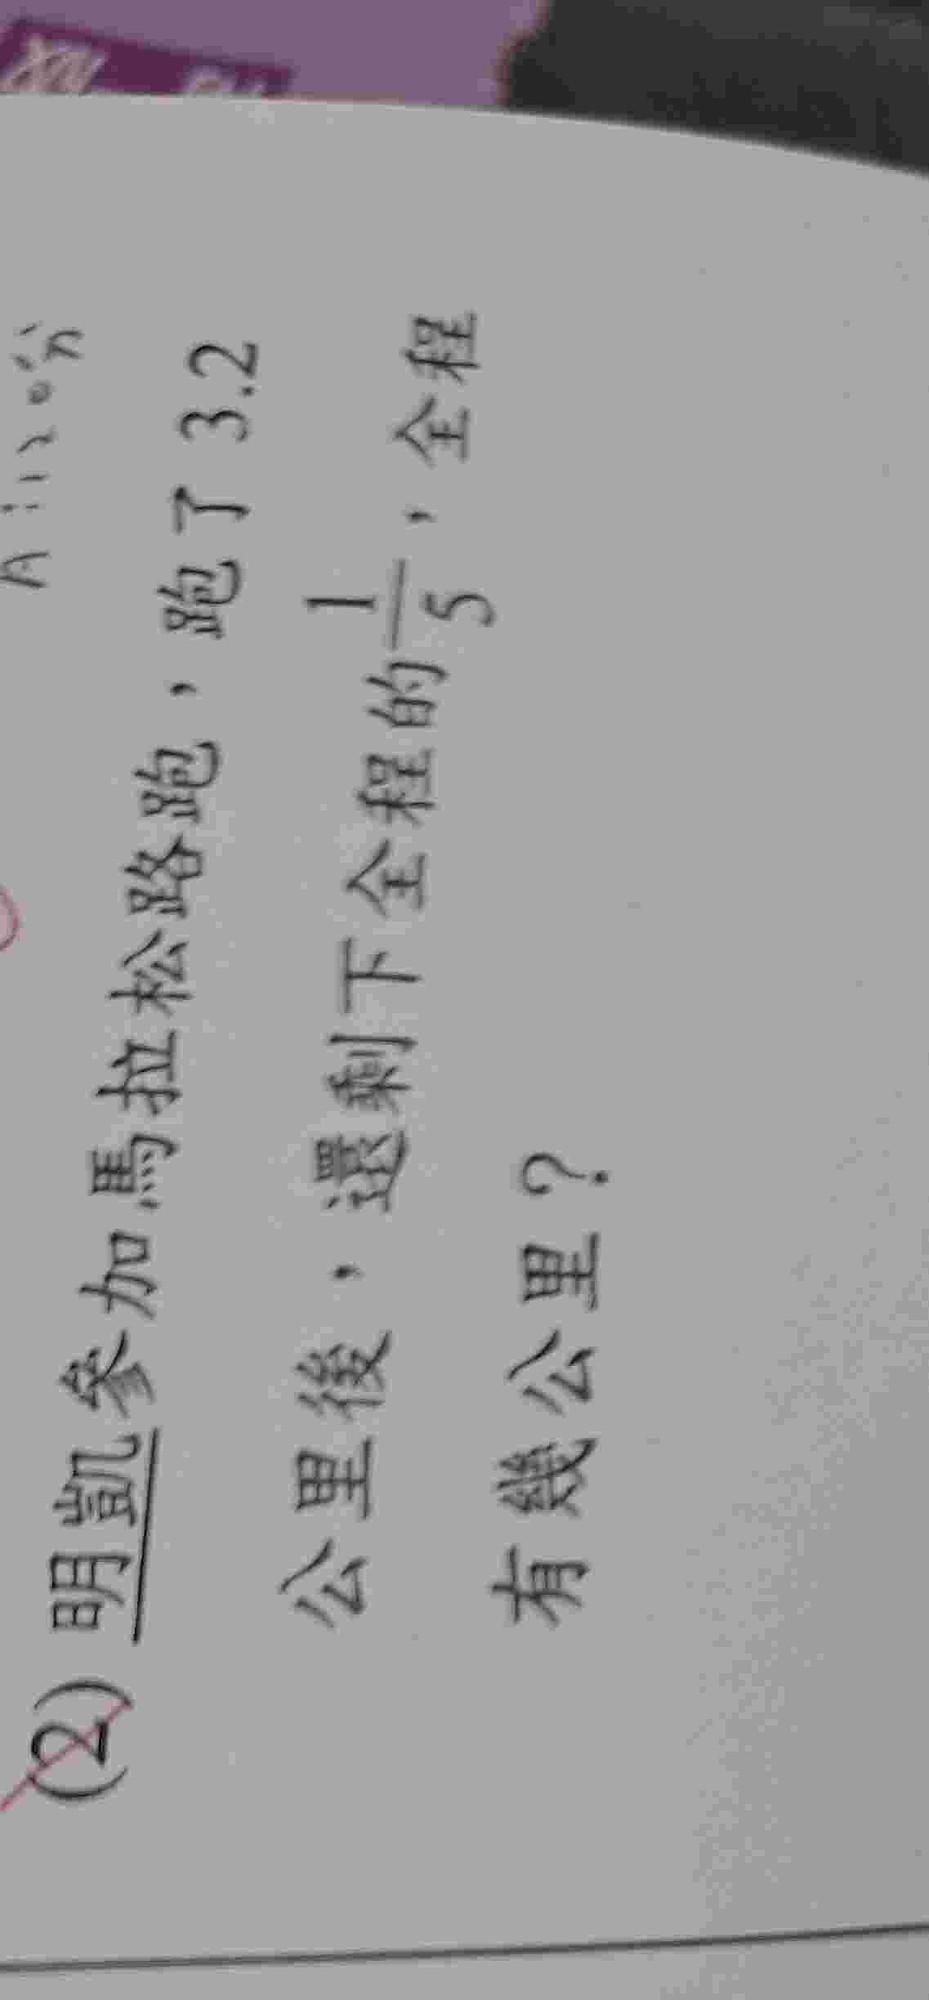 A：120分
(2) 明凱參加馬拉松路跑，跑了 3.2
公里後，還剩下全程的 1/5，全程
有幾公里？